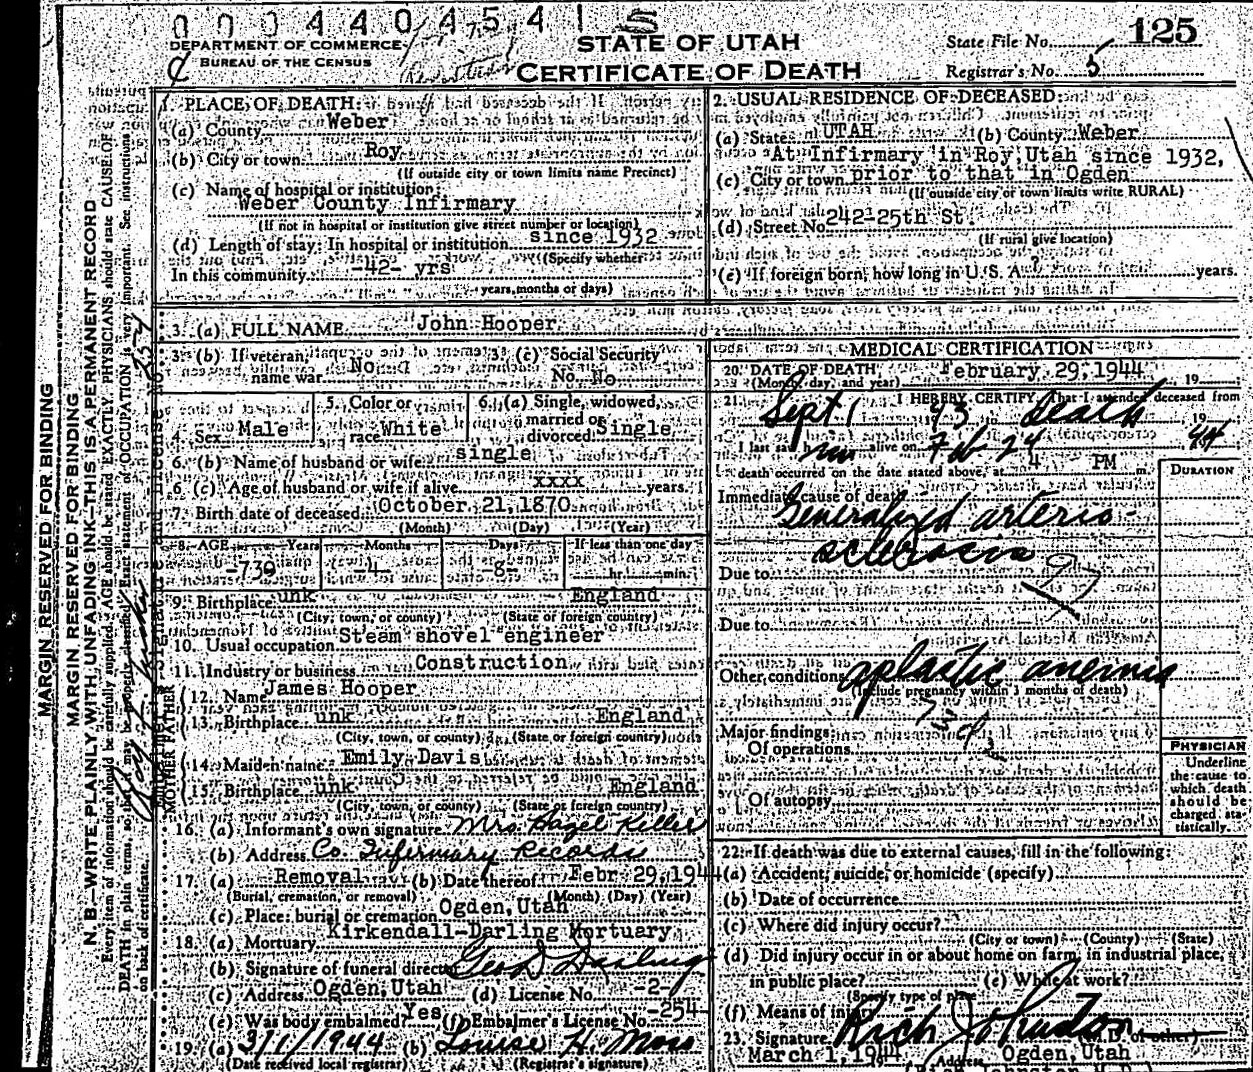 0004404541
DEPARTMENT OF COMMERCE
BUREAU OF THE CENSUS
STATE OF UTAH
CERTIFICATE OF DEATH
State File No. 125
Registrar's No. 5
1. PLACE OF DEATH:
(a) County Weber
(b) City or town Roy
(If outside city or town limits name Precinct)
(c) Name of hospital or institution:
Weber County Infirmary
(If not in hospital or institution give street number or location)
(d) Length of stay: In hospital or institution since 1932
(Specify whether
In this community -42- yrs
years, months or days)
2. USUAL RESIDENCE OF DECEASED:
(a) State UTAH (b) County Weber
At Infirmary in Roy, Utah since 1932,
(c) City or town prior to that in Ogden
(If outside city or town limits write RURAL)
(d) Street No. 242-25th St.
(If rural give location)
(e) If foreign born, how long in U. S. A. ? years.
3. (a) FULL NAME John Hooper
3. (b) If veteran, name war No
3. (c) Social Security No. No
4. Sex Male
5. Color or race White
6. (a) Single, widowed, married or divorced Single
6. (b) Name of husband or wife single
6. (c) Age of husband or wife if alive xxxx years.
7. Birth date of deceased October 21, 1870
(Month) (Day) (Year)
8. AGE Years Months Days If less than one day
-73- -4- -8- hr. min.
9. Birthplace unk England
(City, town, or county) (State or foreign country)
10. Usual occupation Steam shovel engineer
11. Industry or business Construction
FATHER
12. Name James Hooper
13. Birthplace unk England
(City, town, or county) (State or foreign country)
MOTHER
14. Maiden name Emily Davis
15. Birthplace unk England
(City, town, or county) (State or foreign country)
16. (a) Informant's own signature Mrs. Hazel Keller
(b) Address Co. Infirmary Records
17. (a) Removal (b) Date thereof Febr. 29, 1944
(Burial, cremation, or removal) (Month) (Day) (Year)
(c) Place: burial or cremation Ogden, Utah
18. (a) Mortuary Kirkendall-Darling Mortuary
(b) Signature of funeral director Geo D Darling
(c) Address Ogden, Utah (d) License No. -2-
(e) Was body embalmed? Yes (f) Embalmer's License No. -254-
19. (a) 3/1/1944 (b) Louise H. Moss
(Date received local registrar) (Registrar's signature)
MEDICAL CERTIFICATION
20. DATE OF DEATH February 29, 1944
(Month, day, and year) 19
21. I HEREBY CERTIFY, That I attended deceased from
Sept 1 43 Death 19 44
I last saw him alive on Feb 24
death occurred on the date stated above, at 4 PM m.
DURATION
Immediate cause of death
Generalized arterio-
sclerosis
Due to 97
Due to
Other conditions aplastic anemia
(Include pregnancy within 3 months of death)
Major findings:
Of operations
Of autopsy
PHYSICIAN
Underline
the cause to
which death
should be
charged sta-
tistically.
22. If death was due to external causes, fill in the following:
(a) Accident, suicide, or homicide (specify)
(b) Date of occurrence
(c) Where did injury occur?
(City or town) (County) (State)
(d) Did injury occur in or about home on farm, in industrial place,
in public place? (e) While at work?
(Specify type of place
(f) Means of injury
23. Signature Rich Johnston (M.D. or other)
March 1, 1944 Address Ogden, Utah
MARGIN RESERVED FOR BINDING
MARGIN RESERVED FOR BINDING
N. B.—WRITE PLAINLY WITH UNFADING INK—THIS IS A PERMANENT RECORD
Every item of information should be carefully supplied. AGE should be stated EXACTLY. PHYSICIANS should state CAUSE OF
DEATH in plain terms, so that it may be properly classified. Exact statement of OCCUPATION is very important. See instructions
on back of certificate.